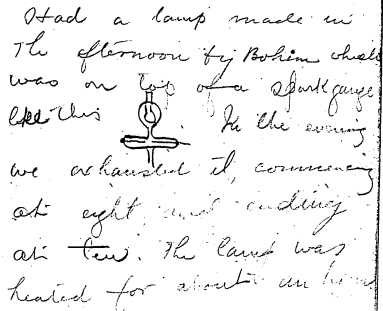 Had a lamp made in
the afternoon by Bohem which
was on top of a spark gauge
like this In the evening
we exhausted it, commencing
at eight and ending
at ten. The lamp was
heated for about an hour